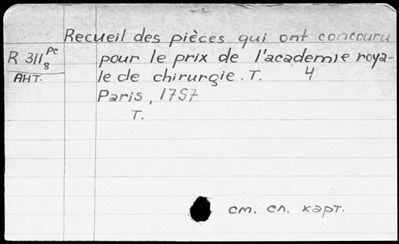 Recueil des pièces qui ont concouru
R 311 Pc/8 pour le prix de l'academie roya-
АНТ. le de chirurgie. T. 4
Paris, 1757
T.
см. сл. карт.